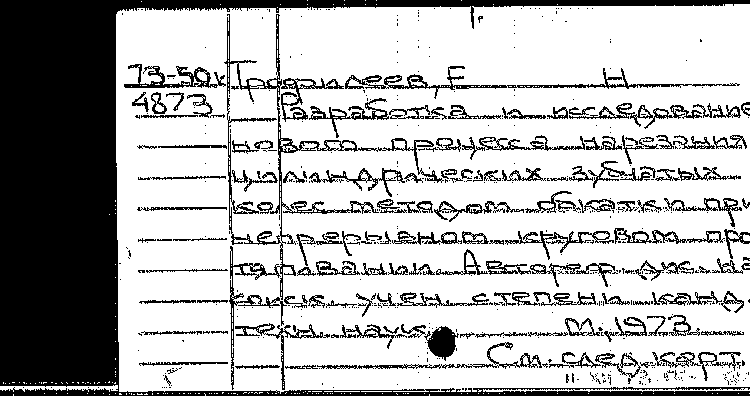 73-50к Трофилеев, Е Н
4873 Разработка и исследование
нового процесса нарезания
цилиндрических зубчатых
колес методом обкатки при
непрерывном круговом про
тягивании. Автореф. дис. на
соиск. учен. степени канд.
техн. наук. М., 1973.
См. след. карт.